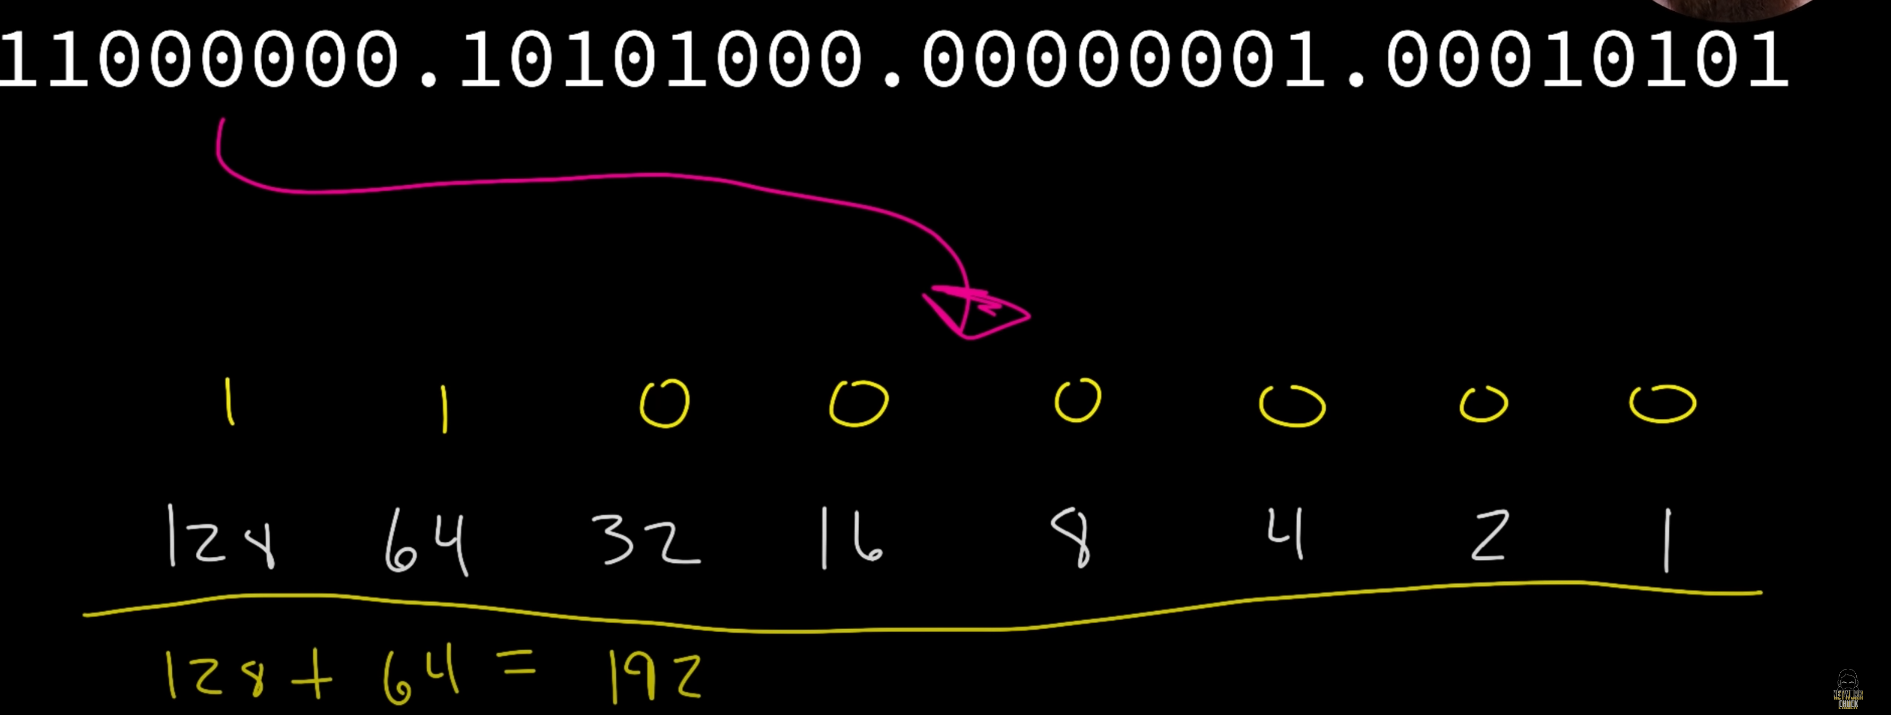 11000000.10101000.00000001.00010101
1 1 0 0 0 0 0 0
128 64 32 16 8 4 2 1
128 + 64 = 192